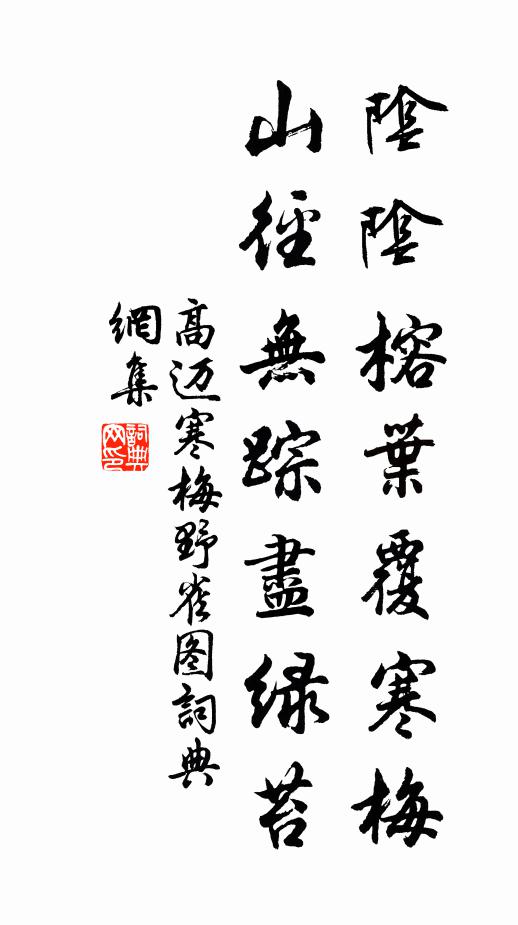 陰陰榕葉覆寒梅
山徑無踪盡緑苔
高迈寒梅野雀图詞典
網集
詞典
网印